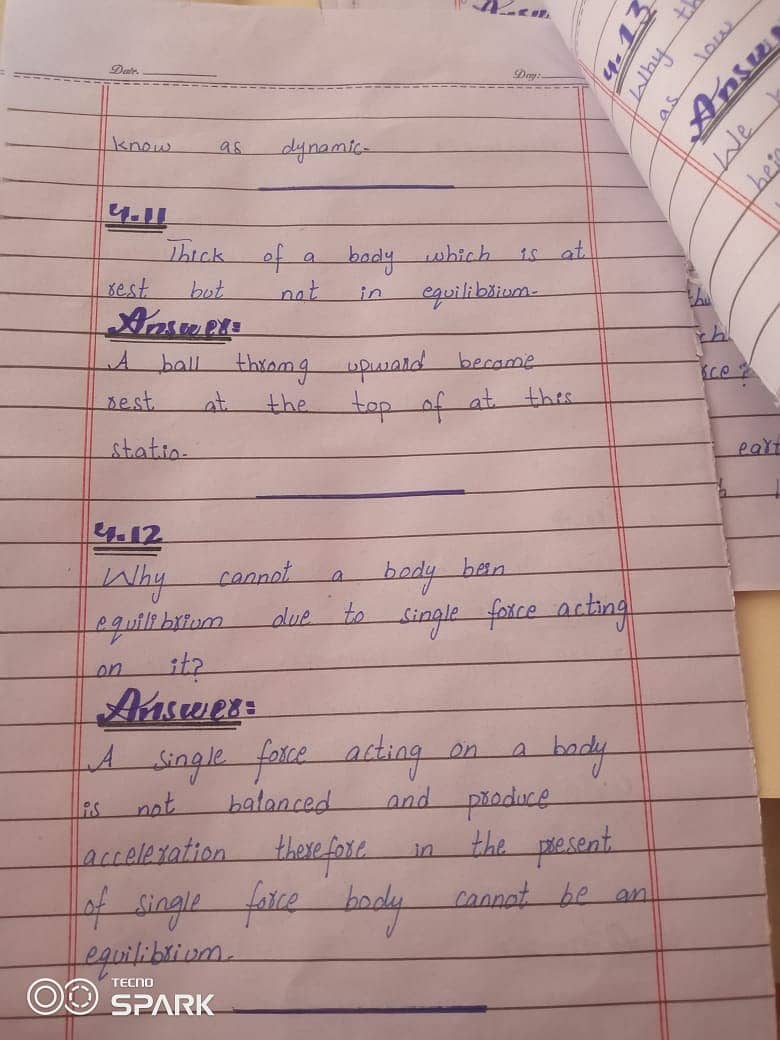 Answ
Date.
Day:
know as dynamic-
4.11
Thick of a body which is at
rest but not in equilibrium-
Answer:
A ball thromg upward become
rest at the top of at this
statio-
4.12
Why cannot a body bein
equilibrium due to single force acting
on it?
Answer:
A single force acting on a body
is not balanced and produce
acceleration therefore in the present
of single force body cannot be an
equilibrium-
4.13
Why th
as low
Answer
We
bein
rce?
eart
TECNO
SPARK